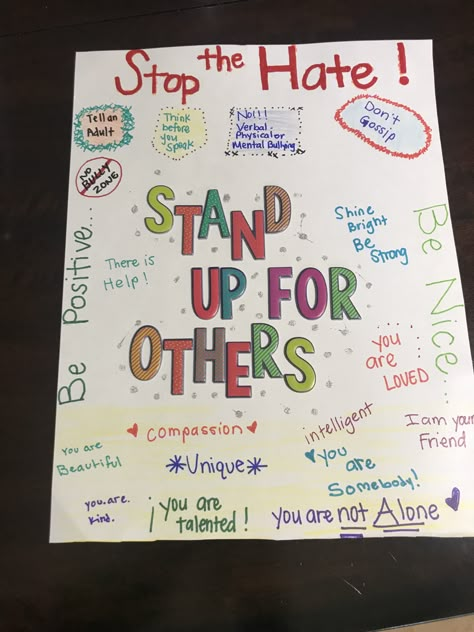 Stop the Hate!
Tell an
Adult
Think
before
you
speak
No!!!
Verbal
Physical or
Mental Bullying
Don't
Gossip
NO
BULLY
ZONE
Be Positive...
There is
Help!
STAND
UP FOR
OTHERS
Shine
Bright
Be
Strong
Be Nice...
you
are
LOVED
compassion
intelligent
I am your
Friend
you are
Beautiful
*Unique*
you
are
Somebody!
you.are.
kind.
¡you are
talented!
you are not Alone